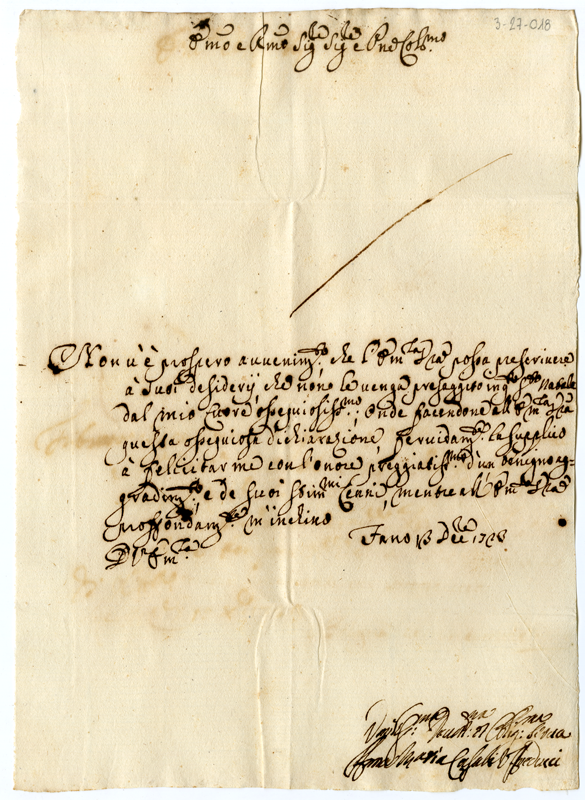 3-27-018
E.mo e R.mo Sig.re Sig.re e P.ne Col.mo
Non v'è prospero avvenim.to che l'E.mza V.ra possa prescrivere
à suoi desiderij che non le venga presaggito in q.to S.to Natale
dal mio cuore ossequiosiss.mo; onde facendone all'E.mza V.ra
questa ossequiosa dichiarazione, fervidam.te la supplico
à felicitarme con l'onore preggiatiss.mo d'un benigno ag-
gradim.to, e de suoi stim.mi cenni, mentre all'E.mza V.ra
proffondam.te m'inchino
Di V.ra E.mza
Fano 13 Dec.re 1728
Um.ma Devot.ma et Oblig.ma Serva
Maria